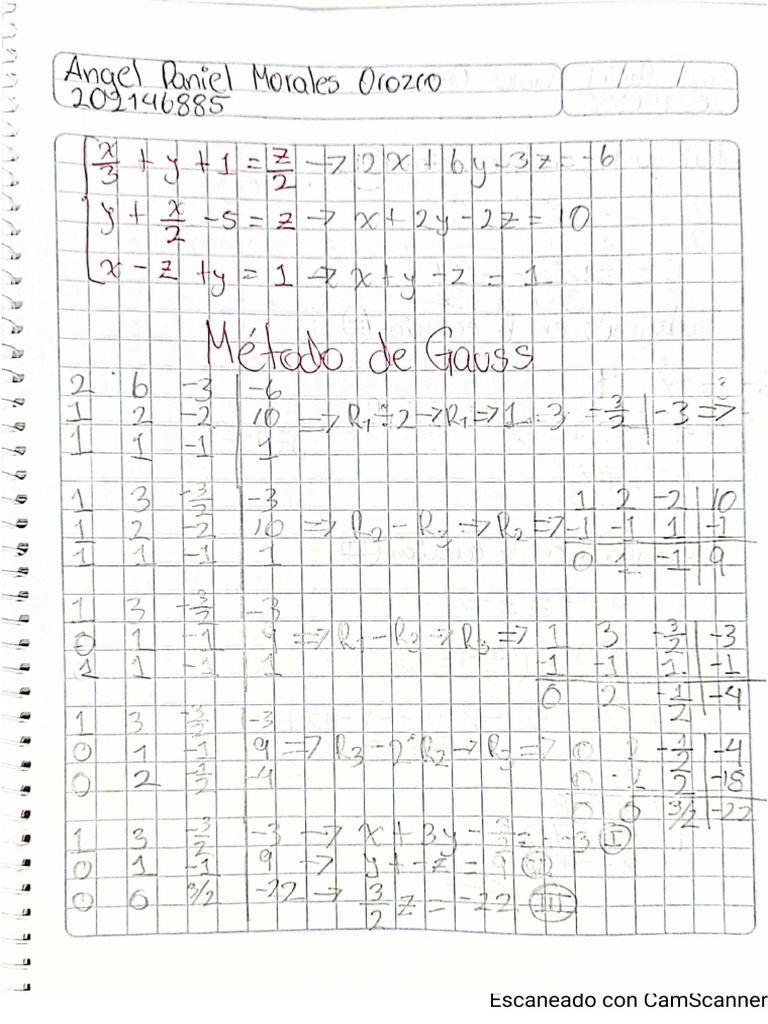 Angel Daniel Morales Orozco
202146885
x/3 + y + 1 = z/2 → 2x + 6y - 3z = -6
y + x/2 - 5 = z → x + 2y - 2z = 10
x - z + y = 1 → x + y - z = 1
Método de Gauss
2 6 -3 | -6
1 2 -2 | 10 ⇒ R₁ ÷ 2 → R₁ ⇒ 1 3 -3/2 | -3 ⇒
1 1 -1 | 1
1 3 -3/2 | -3
1 2 -2 | 10 ⇒ R₂ - R₃ → R₂ ⇒
1 1 -1 | 1
1 2 -2 | 10
-1 -1 1 | -1
0 1 -1 | 9
1 3 -3/2 | -3
0 1 -1 | 9 ⇒ R₁ - R₃ → R₃ ⇒
1 1 -1 | 1
1 3 -3/2 | -3
-1 -1 1 | -1
0 2 -1/2 | -4
1 3 -3/2 | -3
0 1 -1 | 9 ⇒ R₃ - 2R₂ → R₃ ⇒
0 2 -1/2 | -4
0 2 -1/2 | -4
0 -2 2 | -18
0 0 3/2 | -22
1 3 -3/2 | -3 → x + 3y - 3/2 z = -3 (I)
0 1 -1 | 9 → y + -z = 9 (II)
0 0 3/2 | -22 → 3/2 z = -22 (III)
Escaneado con CamScanner